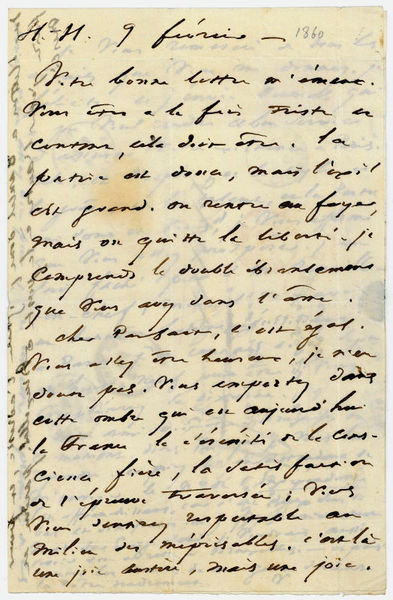 H.-H. 9 février — 1860
Votre bonne lettre m'émeut.
Vous êtes à la fois triste et
content, cela doit être. La
patrie est douce, mais l'exil
est grand. On rentre au foyer,
mais on quitte la liberté. Je
comprends le double ébranlement
que vous avez dans l'âme.
Cher Parfait, c'est égal.
Vous allez être heureux, je n'en
doute pas. Vous emportez dans
cette ombre qui est aujourd'hui
la France la sérénité de la cons-
cience fière, la satisfaction
de l'épreuve traversée ; vous
vous sentirez respectable au
milieu des méprisables. C'est là
une joie austère, mais une joie.